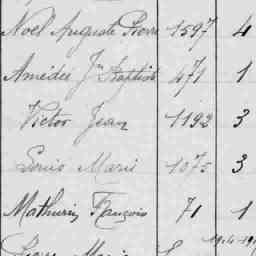 Noël Auguste Pierre 1597 4
Amédée Jn Baptiste 471 1
Victor Jean 1192 3
Louis Marie 1075 3
Mathurin François 71 1